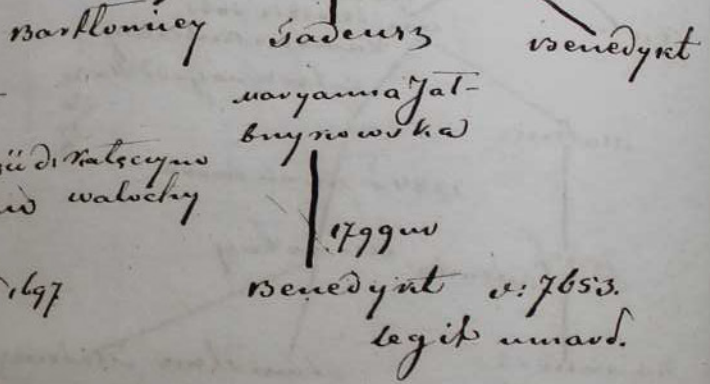 Bartłomiey Tadeusz Benedykt
Maryanna Jał-
brzykowska
walochy
1799
1697
Benedykt v: 7653.
legit